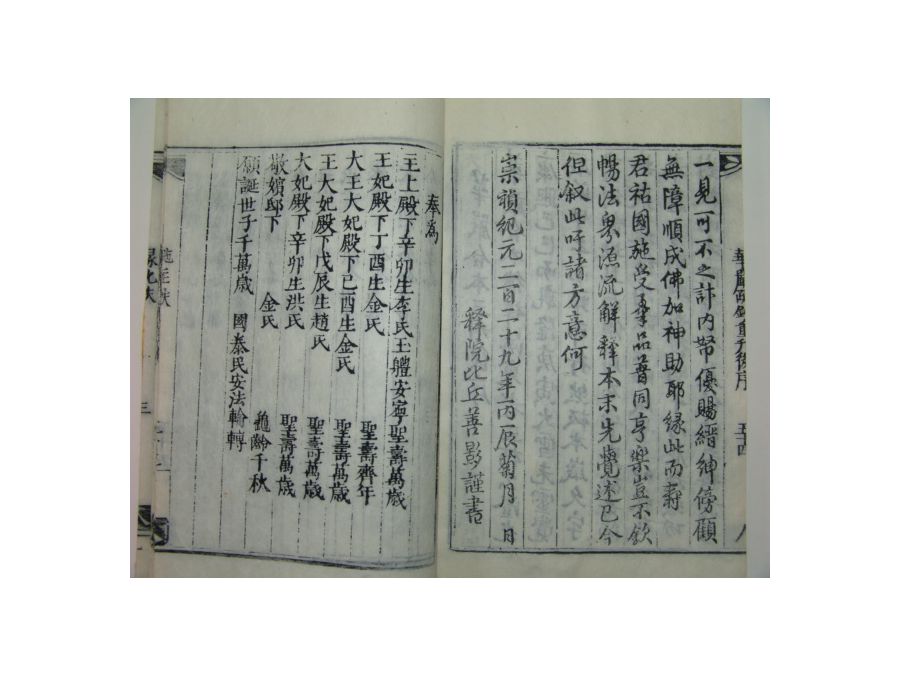 華嚴 重刊後序 五十四
一見可不之計内帑優賜縉紳傍顧
無障順成佛加神助耶緣此而壽
君祐國施受 品普同亨樂豈不欽
暢法界源流解釋本末先覺述已今
但叙此吁諸方意何
崇禎紀元二百二十九年丙辰菊月 日
釋院比丘善影謹書
奉爲
主上殿下辛卯生李氏玉體安寧聖壽萬歲
王妃殿下丁酉生金氏 聖壽齊年
大王大妃殿下己酉生金氏 聖壽萬歲
王大妃殿下戊辰生趙氏 聖壽萬歲
大妃殿下辛卯生洪氏 聖壽萬歲
嬪邸下 金氏 龜齡千秋
願誕世子千萬歲 國泰民安法輪轉
施主秩